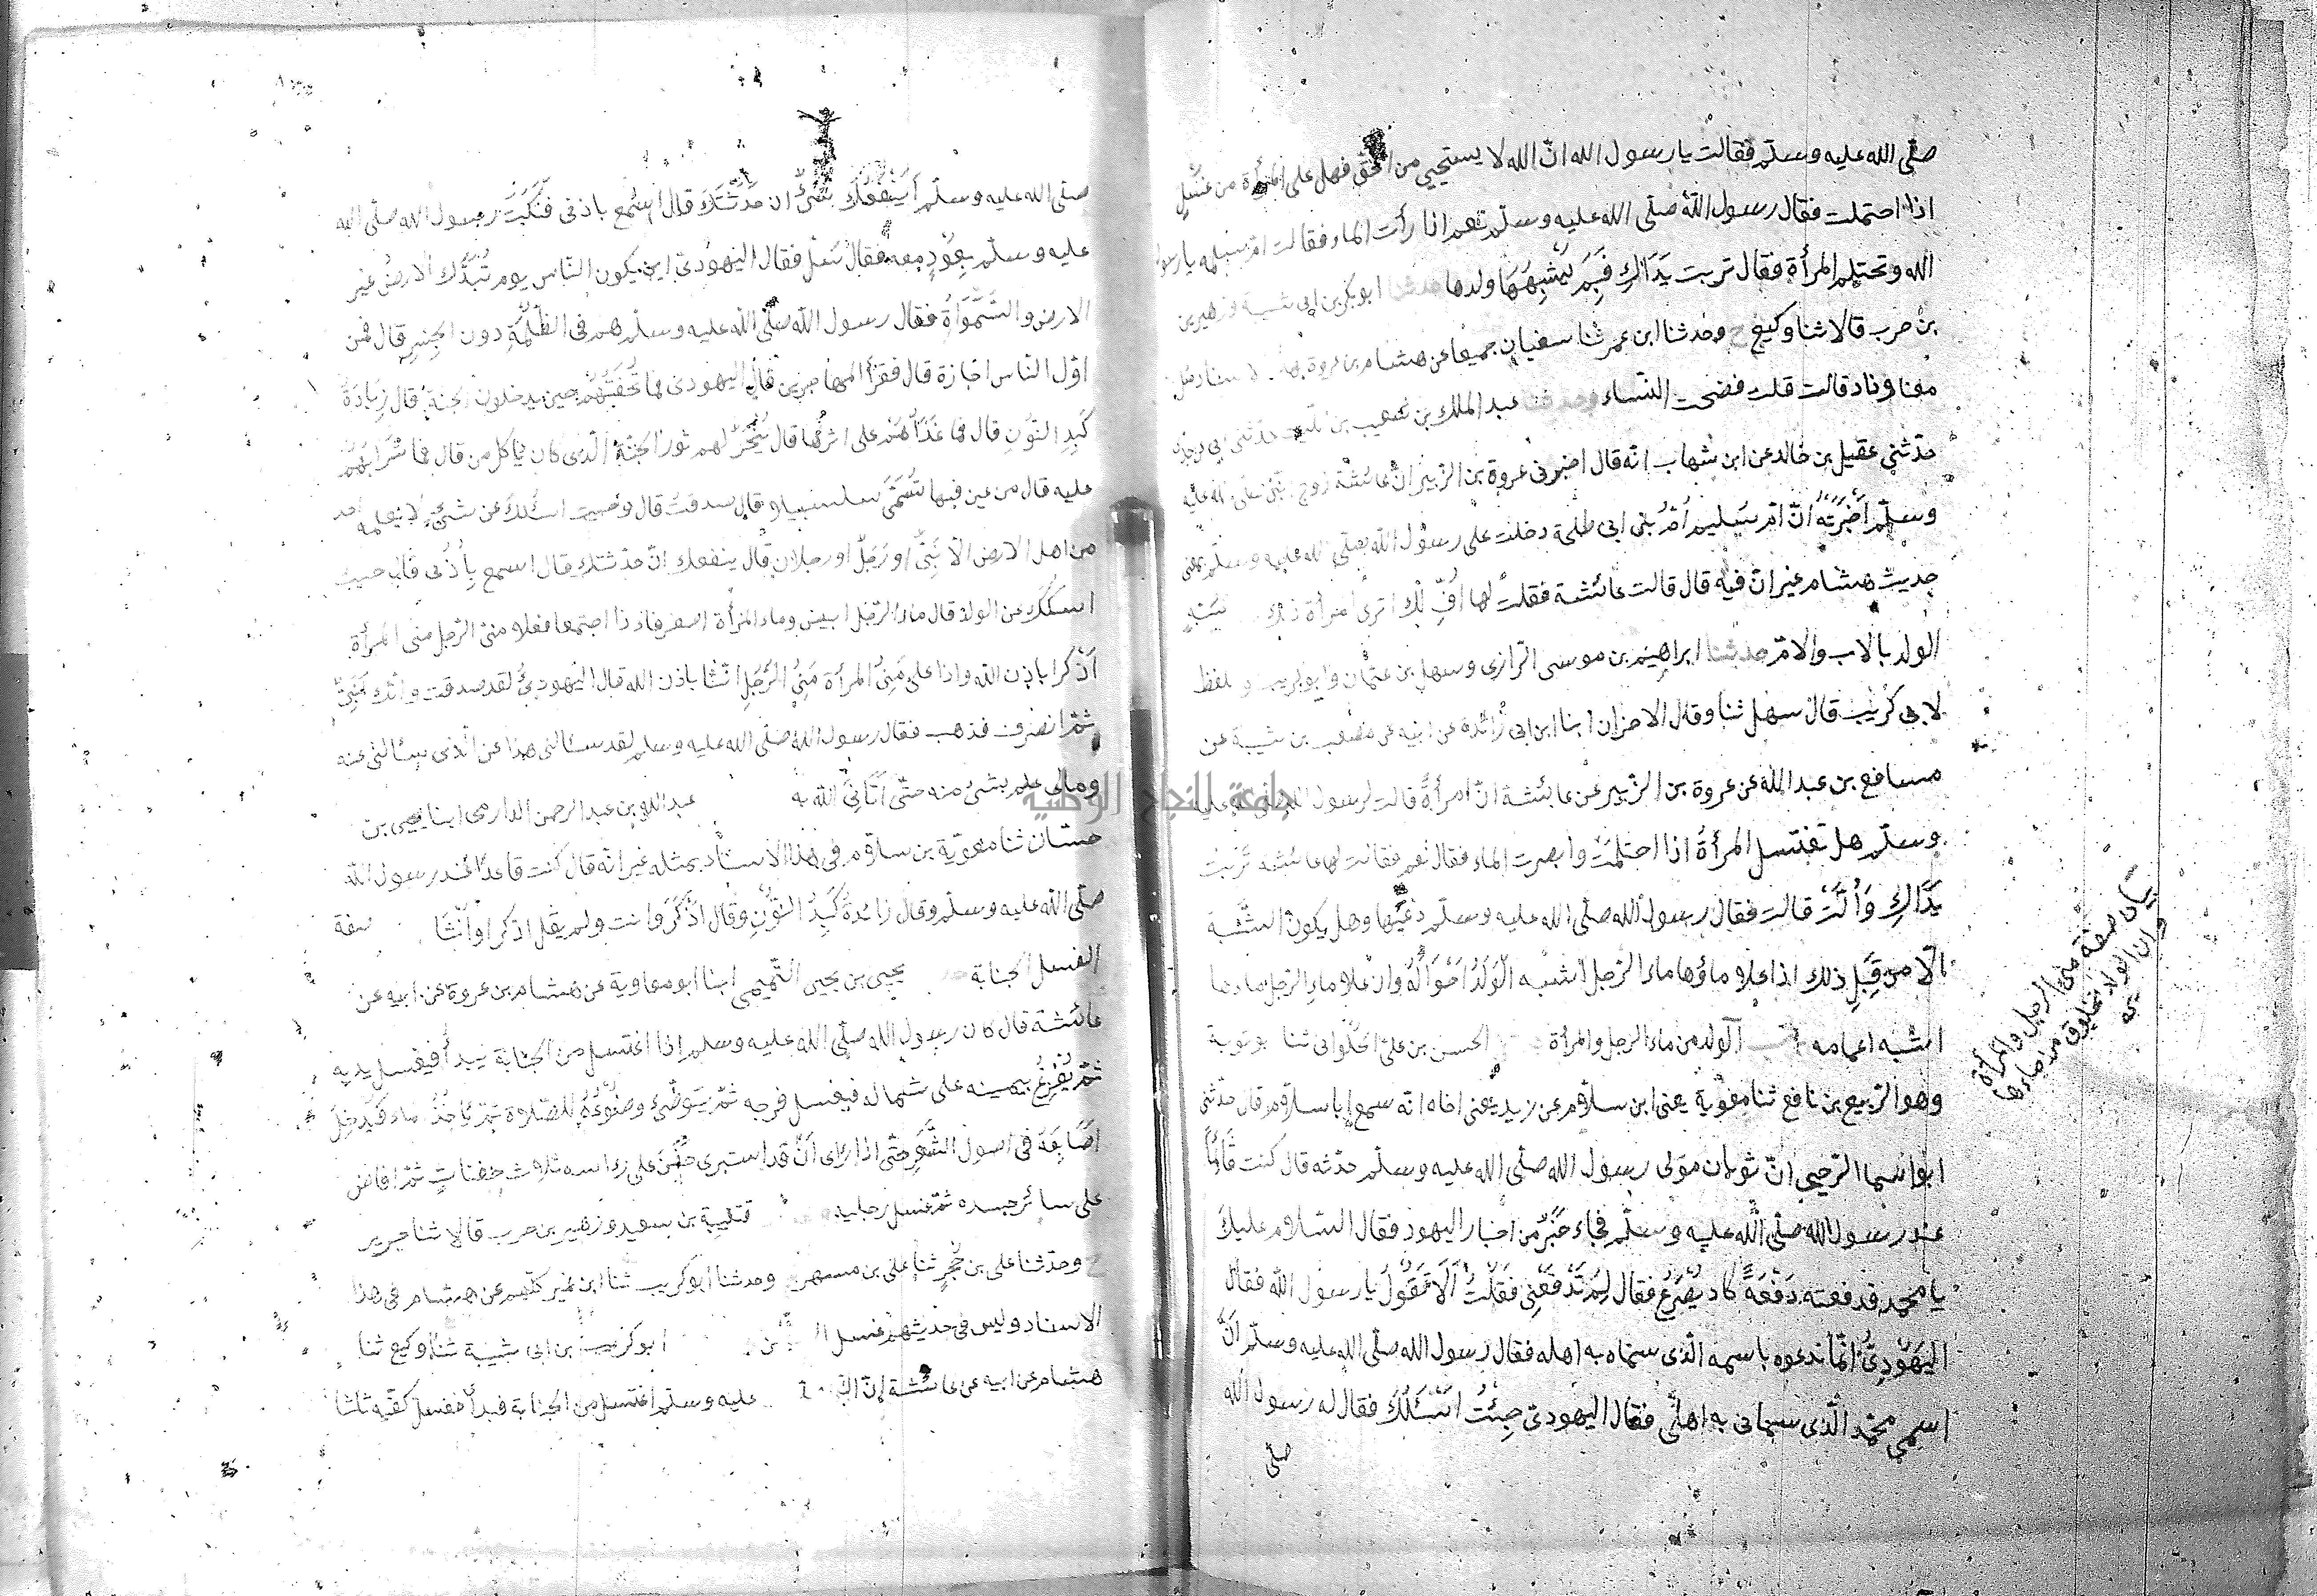 صلى الله عليه وسلم فقالت يا رسول الله ان الله لا يستحيي من الحق فهل على المرأة من غسل
اذا احتملت فقال رسول الله صلى الله عليه وسلم نعم اذا رأت الماء فقالت ام سلمه يا رسول
الله وتحتلم المرأة فقال تربت يَدَاكِ فَبِمَ يُشْبِهُهَا ولدها حدثنا ابو بكر بن ابي شيبة وزهير بن
بن حرب قالا ثنا وكيع ح وحدثنا ابن عمر ثنا سفيان جميعا عن هشام بن عروة بهذا الاسناد مثل
معناه وزاد قالت قلت فضحت النساء وحدثنا عبد الملك بن شعيب بن الليث حدثني ابي عن جدي
حدثني عقيل بن خالد عن ابن شهاب انه قال اخبرني عروة بن الزبير ان عائشة زوج النبي صلى الله عليه
وسلم اَخْبَرَتْهُ انّ ام سُليم اُمّ بني ابي طلحة دخلت على رسول الله صلى الله عليه وسلم بمعنى
حديث هشام غير انّ فيه قال قالت عائشة فقلت لها اُفٍّ لك اترى المرأة ذلك
الولد بالاب والام حدثنا ابراهيم بن موسى الرازى وسهل بن عثمان وابو كريب واللفظ
لابى كريب قال سهل ثنا وقال الاخران ابنا ابن ابى زائدة عن ابيه عن مصعب بن شيبة عن
مسافع بن عبد الله عن عروة بن الزبير عن عائشة انّ امرأةً قالت لرسول الله صلى الله عليه
وسلم هل تغتسل المرأة اذا احتلمت وابصرت الماء فقال نعم فقالت لها عائشه تربت
يَدَاكِ وَاُلَّتْ قالت فقال رسول الله صلى الله عليه وسلم دعيها وهل يكون الشبه
الا من قِبَلِ ذلك اذا علا ماؤها ماء الرجل اشبه الولدُ اخوالَهُ وان علا ماء الرجل ماءها
اشبه اعمامه الولد من ماء الرجل والمرأة الحسن بن على الحلوانى ثنا ابو توبة
وهو الربيع بن نافع ثنا معوية يعنى ابن سلام عن زيد يعنى اخاه انه سمع ابا سلام قال حدثنى
ابو اسما الرحبى انّ ثوبان مولى رسول الله صلى الله عليه وسلم حدثه قال كنت قائما
عند رسول الله صلى الله عليه وسلم فجاء حَبْرٌ من احبار اليهود فقال السلام عليك
يا محمد فدفعته دَفْعَةً كاد يُصْرَعُ فقال لِمَ تَدْفَعُنِى فقلتُ اَلَا تَقُولُ يا رسول الله فقال
اليَهُودِىُّ انما ندعوه باسمه الذى سماه به اهله فقال رسول الله صلى الله عليه وسلم انّ
اسمى محمد الذى سمانى به اهلى فقال اليهودى جِئْتُ اَسْئَلُكَ فقال له رسول الله
صلى
بيان صفة منى الرجل والمرأة
وان الولد مخلوق من ماءيهما
صلى الله عليه وسلم اَيَنْفَعُكَ شىءٌ ان حَدَّثْتُكَ قال اسمع باذنى فَنَكَتَ رسول الله صلى الله
عليه وسلم بِعُوْدٍ معه فقال سَلْ فقال اليهودى اين يكون الناس يوم تُبَدَّلُ الارضُ غير
الارض والسَّمٰوَاتُ فقال رسول الله صلى الله عليه وسلم هم فى الظُّلْمَةِ دون الجِسْرِ قال فمن
اوّل الناس اجازة قال فقرأ المهاجرين قال اليهودى فما تُحْفَتُهُمْ حين يدخلون الجنة قال زِيَادَةُ
كَبِدِ النُّوْنِ قال فما غَدَاؤُهُمْ على اثرها قال يُنْحَرُ لهم ثور الجنة الذى كان يأكل من قال فما شَرَابُهُمْ
عليه قال من عين فيها تُسَمَّى سلسبيلا قال صدقت قال وجئت اسئلك عن شىء لا يعلمه احد
من اهل الارض الا نَبِىٌّ او رَجُلٌ او رجلان قال ينفعك ان حدثتك قال اسمع بِاُذُنى قال جئت
اسئلك عن الولد قال ماء الرجل ابيض وماء المرأة اصفر فاذا اجتمعا فعلا منى الرجل منى المرأة
اَذْكَرا باذن الله واذا على مَنِىُّ المرأة مَنِىَّ الرَّجُلِ انثا باذن الله قال اليهودىُّ لقد صدقت وانك لَنَبِىٌّ
ثم انصرف فذهب فقال رسول الله صلى الله عليه وسلم لقد سئالنى هذا عن الذى سئالنى عنه
ومالى علم بشئ منه حتى اَتَانِىَ الله به عبد الله بن عبد الرحمن الدارمى ابنا يحيى بن
حسّان ثنا معوية بن سلام فى هذا الاسناد بمثله غير انه قال كنت قاعدا عند رسول الله
صلى الله عليه وسلم وقال زائدةُ كَبِدُ النُّوْنِ وقال اَذْكَرَ وانث ولم يقل اذكرا وانثا صفة
الغسل الجنابة يحيى بن يحيى التميمى ابنا ابو معاوية عن هشام بن عروة عن ابيه عن
عائشة قال كان رسول الله صلى الله عليه وسلم اذا اغتسل من الجنابة يبدأ فيغسل يديه
ثم يُفْرِغُ بيمينه على شماله فيغسل فرجه ثم يتوضّئ وضُوْءَهُ للصلاة ثم ياخذ ماء فَيُدْخِلُ
اَصَابِعَهُ فى اصول الشعر حتى اذا رأى اَنْ قد استبرى حَفَنَ على راسه ثلاث حفنات ثم افاض
على سائر جسده ثم غسل رجليه قتيبة بن سعيد وزهير بن حرب قالا ثنا جرير
ح وحدثنا على بن حُجْرٍ ثنا على بن مسهر ح وحدثنا ابو كريب ثنا ابن نمير كلهم عن هشام فى هذا
الاسناد وليس فى حديثهم غسل ابو كريب بن ابى شيبة ثنا وكيع ثنا
هشام عن ابيه عن عائشة ان النبى عليه وسلم اغتسل من الجنابة فبدأ فغسل كفيه ثلثا
جامعة النجاح الوطنية